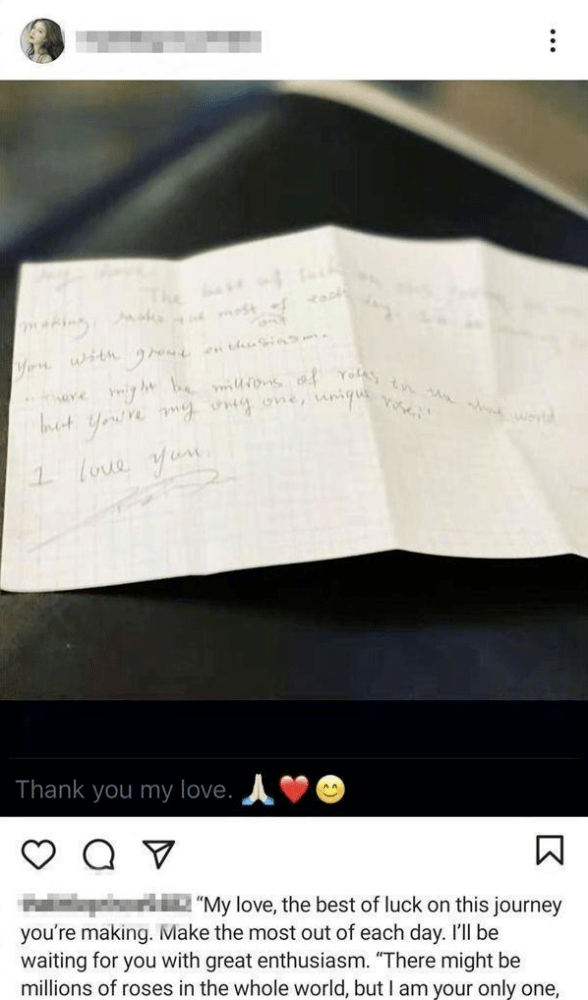 My love
The best of luck on this
making. Make the most of each day.
out
You with great enthusiasm.
"There might be millions of roses in the whole world
but you're my only one, unique rose."
I love you.
Thank you my love. 🙏🏻❤️😊
"My love, the best of luck on this journey
you're making. Make the most out of each day. I'll be
waiting for you with great enthusiasm. "There might be
millions of roses in the whole world, but I am your only one,